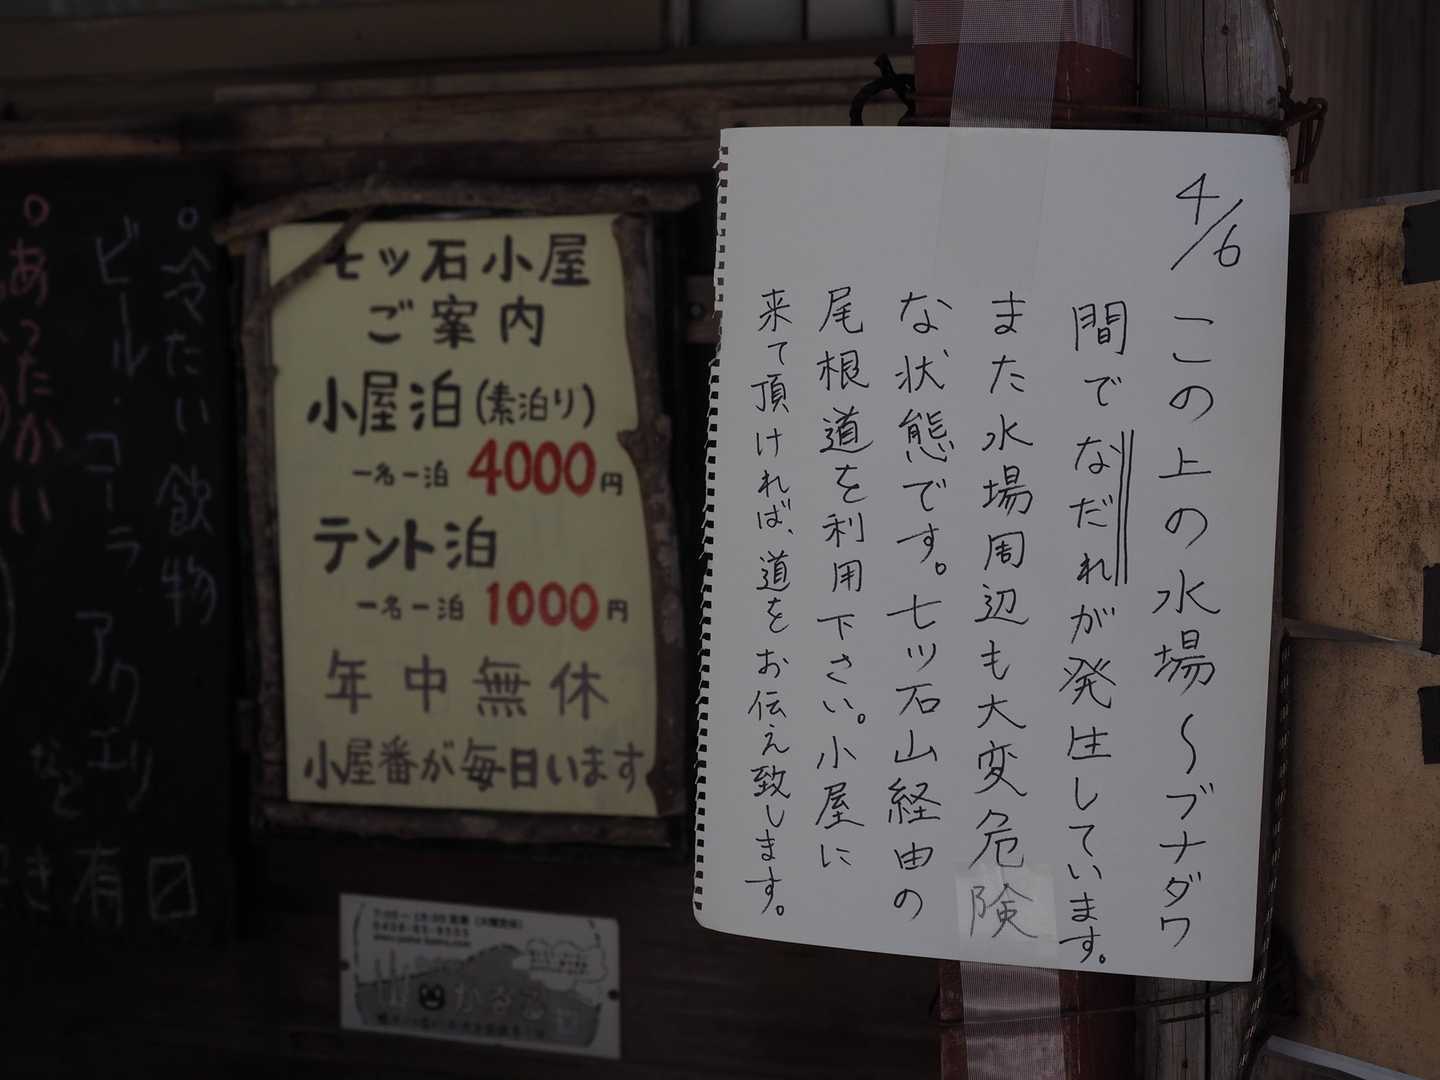 4/6
この上の水場〜ブナダワ
間でなだれが発生しています。
また水場周辺も大変危険
な状態です。七ツ石山経由の
尾根道を利用下さい。小屋に
来て頂ければ、道をお伝え致します。
七ッ石小屋
ご案内
小屋泊(素泊り)
一名一泊 4000円
テント泊
一名一泊 1000円
年中無休
小屋番が毎日います
冷たい飲物
ビール・コーラ
アクエリ
など
あったかい